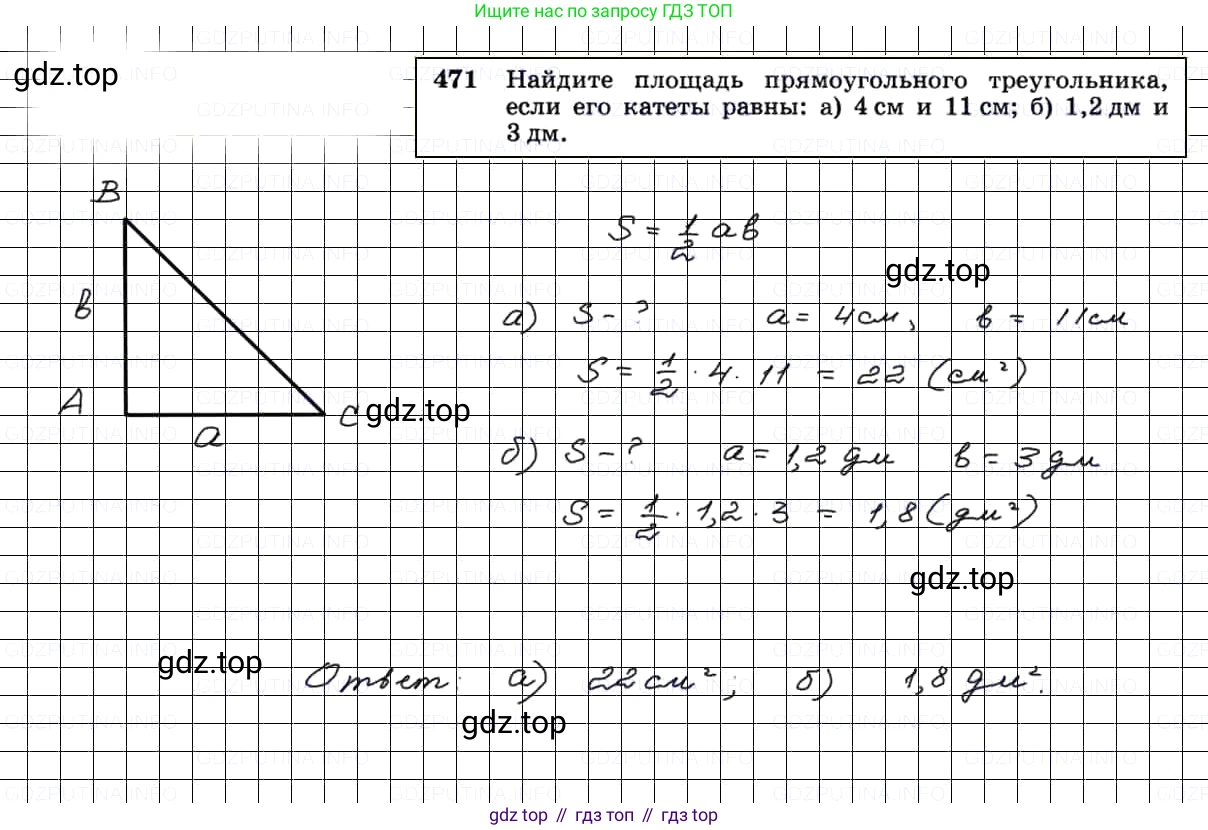 Ищите нас по запросу ГДЗ ТОП
gdz.top
471 Найдите площадь прямоугольного треугольника,
если его катеты равны: а) 4 см и 11 см; б) 1,2 дм и
3 дм.
B
S = 1/2 ab
gdz.top
b
а) S - ? a = 4 см, b = 11 см
S = 1/2 · 4 · 11 = 22 (см²)
A
C
gdz.top
a
б) S - ? a = 1,2 дм b = 3 дм
S = 1/2 · 1,2 · 3 = 1,8 (дм²)
gdz.top
gdz.top
Ответ: а) 22 см²; б) 1,8 дм².
gdz.top
GDZPUTINA.INFO
gdz top // гдз топ // гдз top